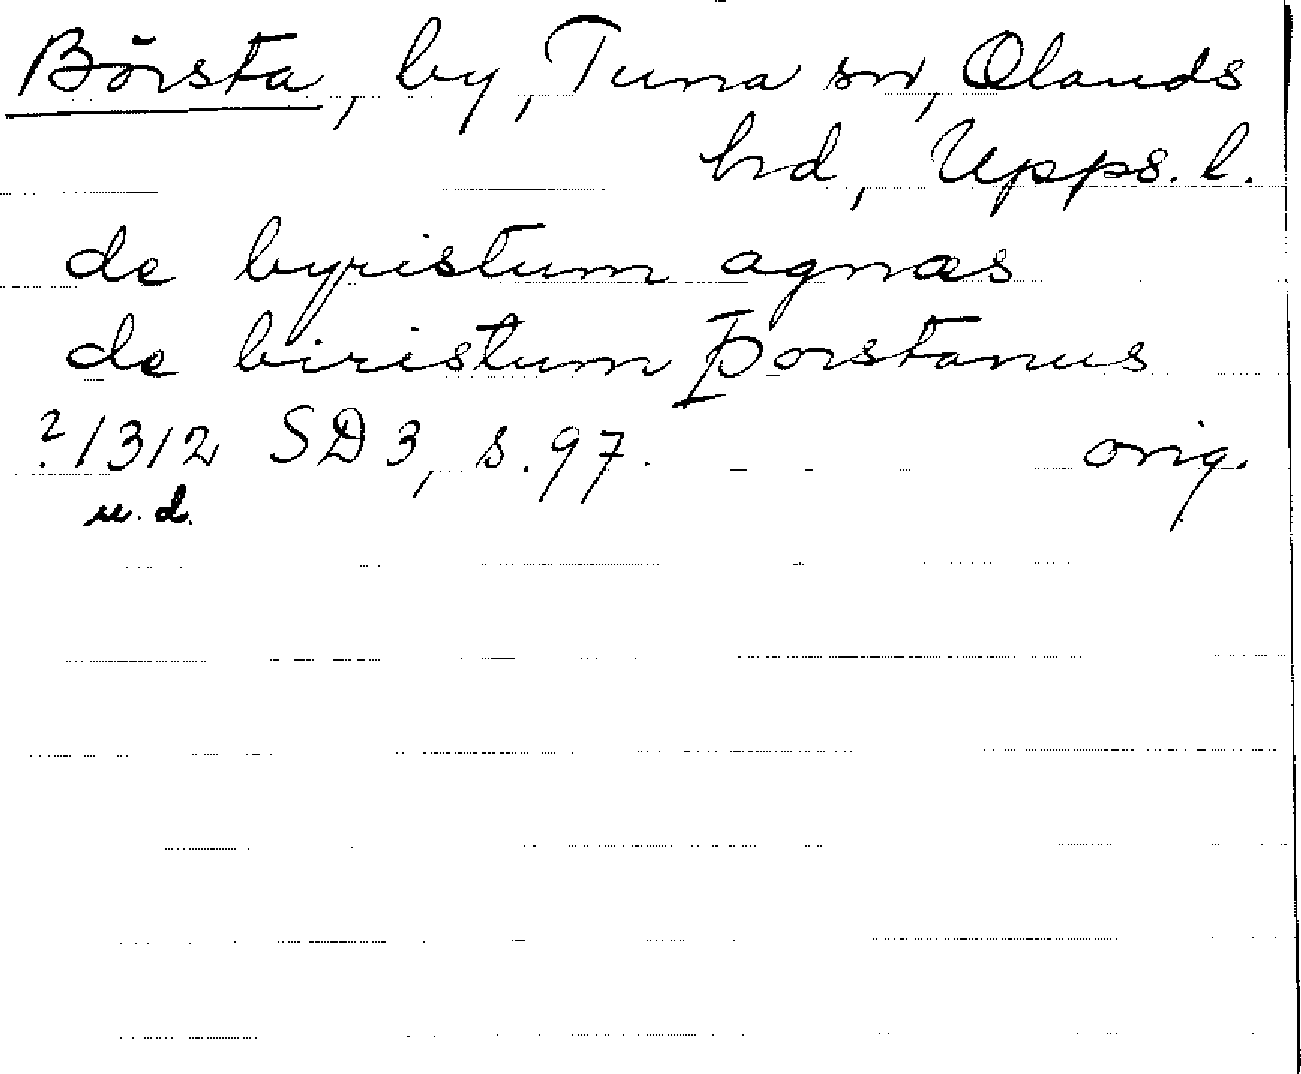 Börsta, by, Tuna sn, Olands
hd, Upps. l.
de byristum agnæs
de biristum Þorstanus
?/1312 SD 3, s. 97. orig.
u. d.